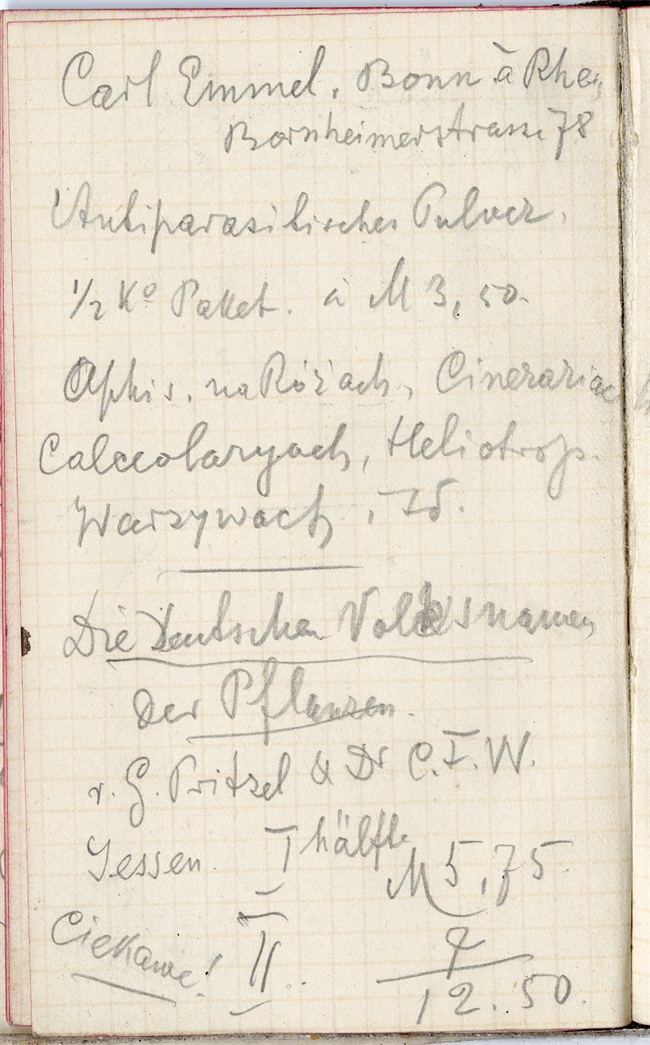 Carl Emmel, Bonn à Rhe
Bornheimerstrasse 78
Antiparasitisches Pulver.
1/2 Kº Paket. à M 3,50.
Aphis. na Różach, Cinerariac
Calceolaryach, Heliotrop.
Warzywach,
Die Deutschen Volksnamen
der Pflanzen.
v. G. Pritzel & Dr C.F.W.
Jessen I hälfte
M 5,75
Ciekawe! II
12.50